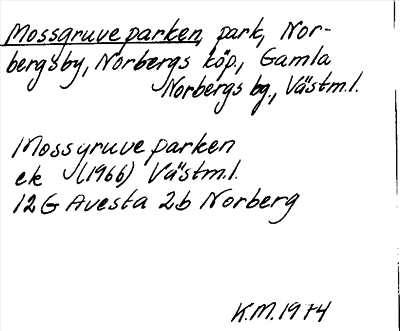 Mossgruveparken, park, Nor-
bergsby, Norbergs köp., Gamla
Norbergs bg., Västm.l.
Mossgruveparken
ek (1966) Västm.l.
12G Avesta 2b Norberg
K.M. 1974